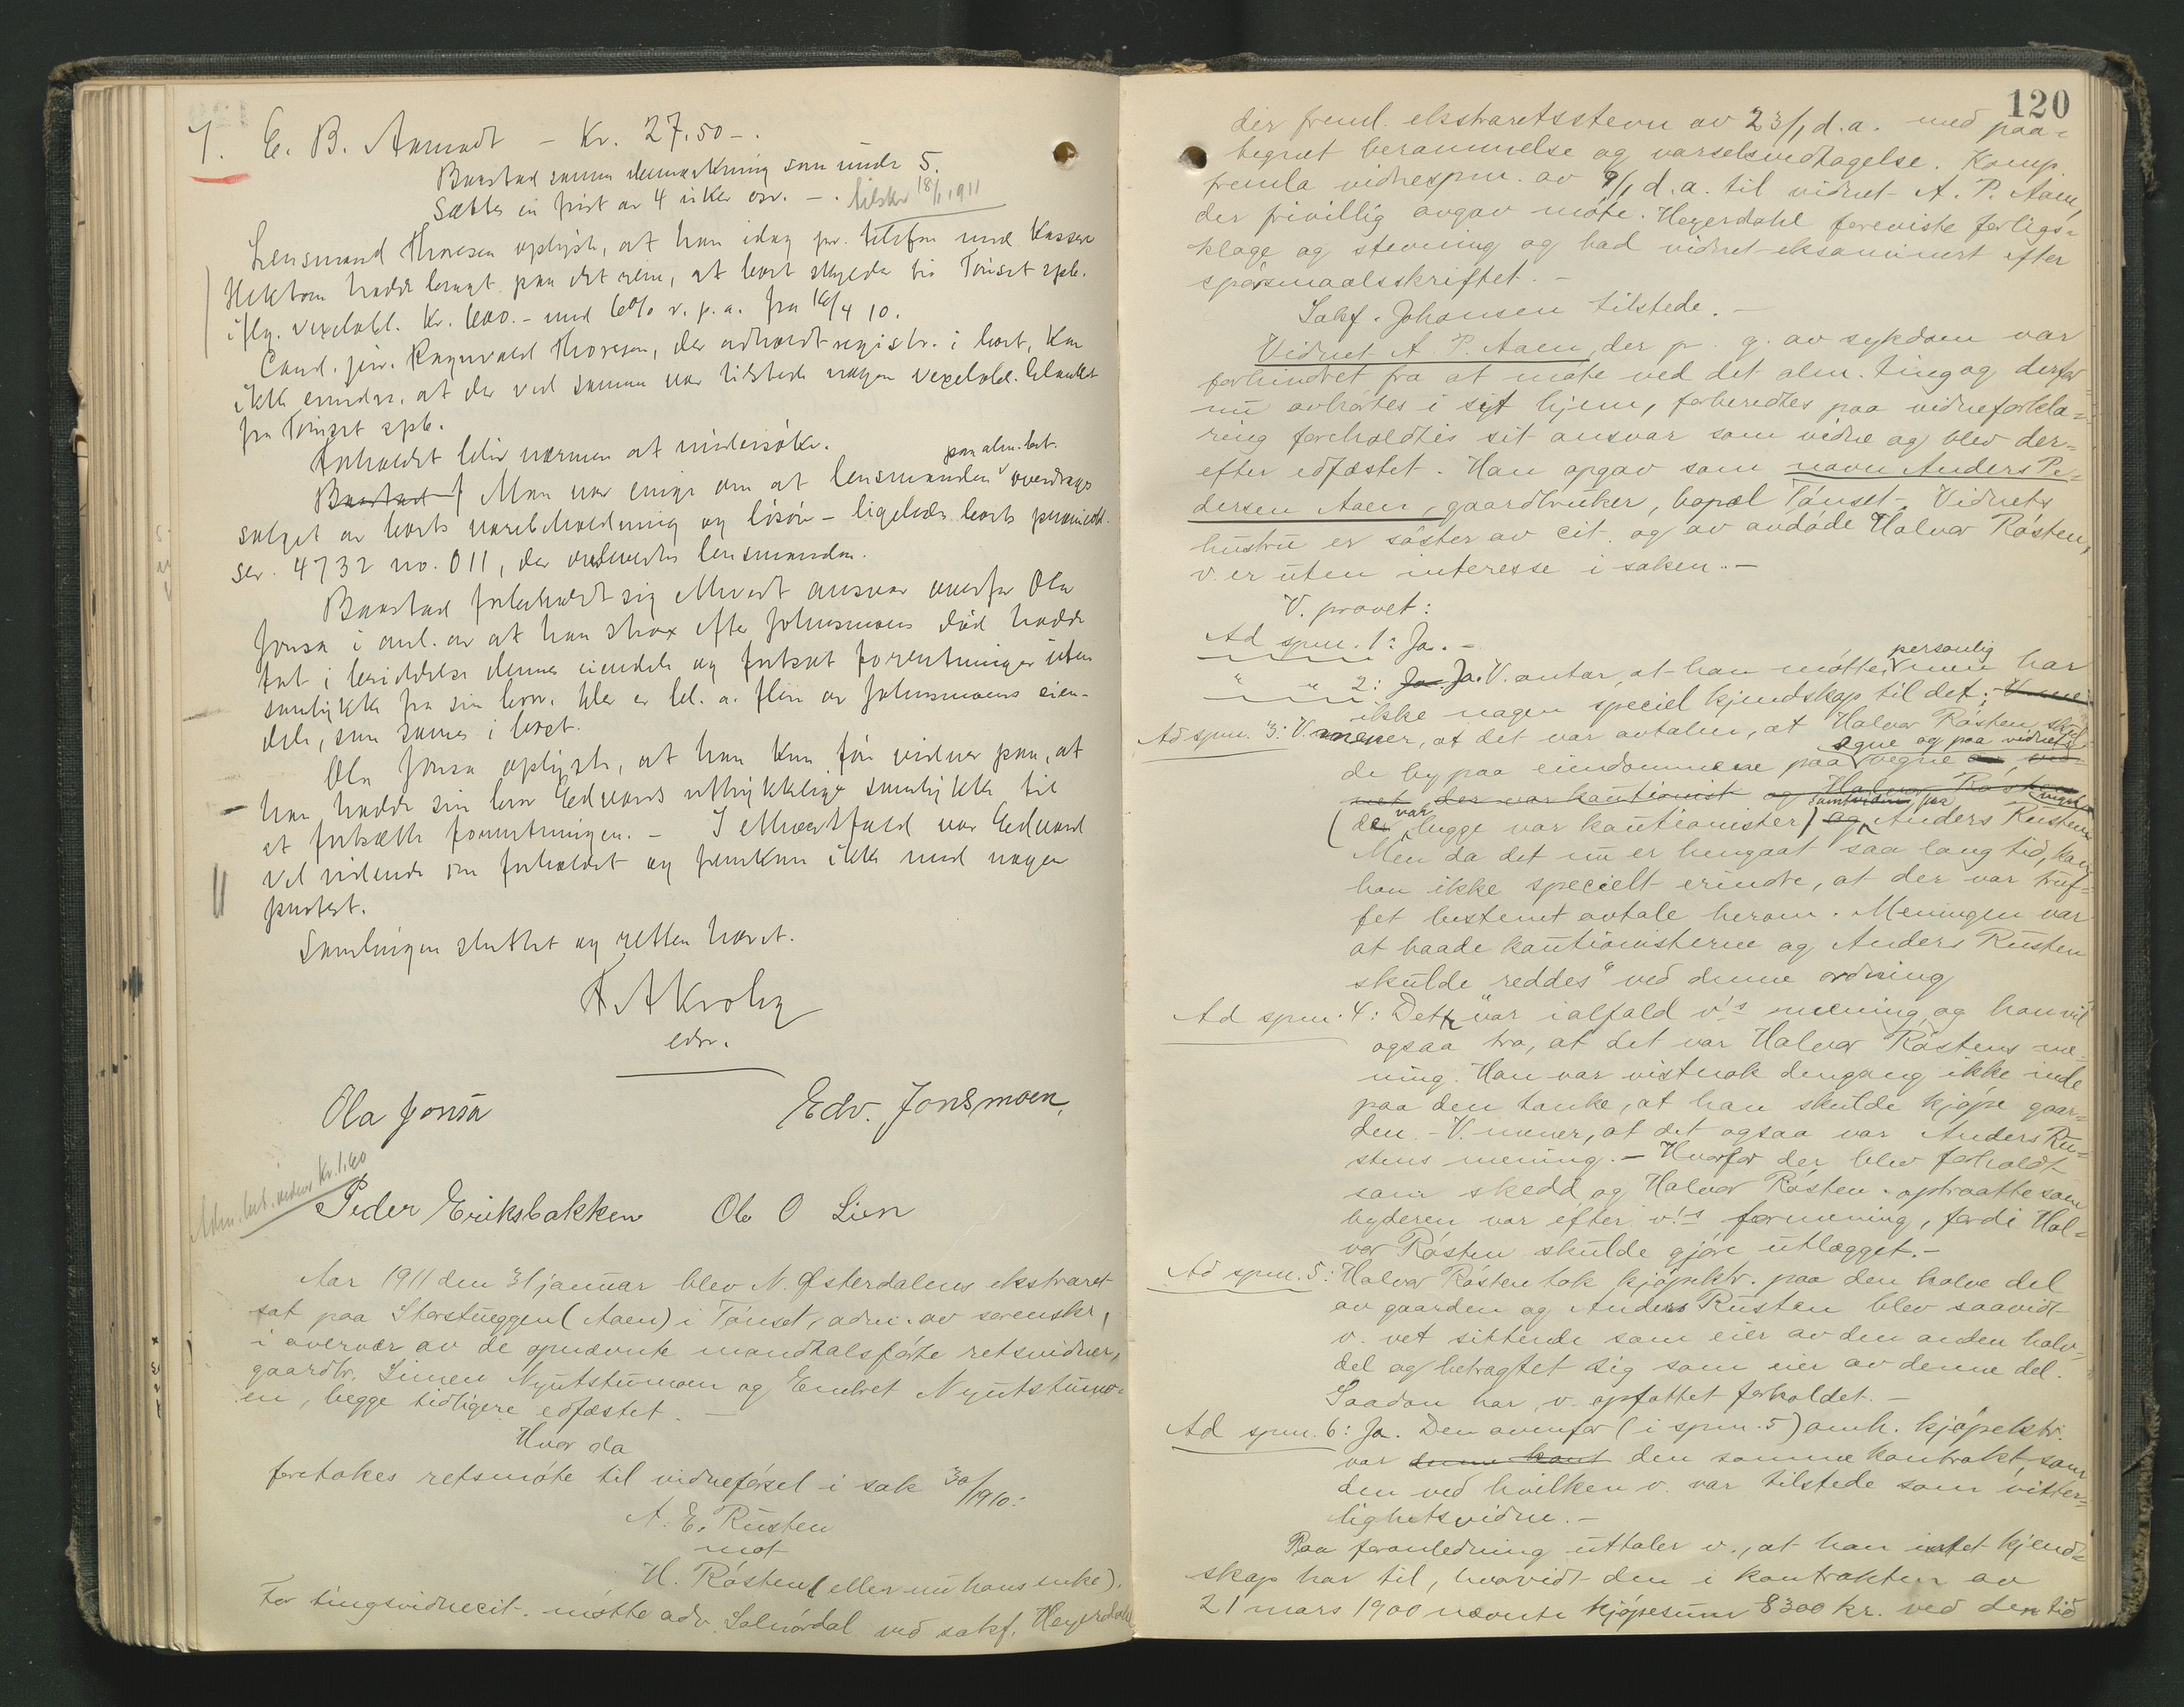 7. E. B. Aamodt - Kr. 27.50 -.
Baastad samme bemærkning som under 5.
Sættes en frist av 4 uker osv. -. tilskr 18/1 1911
Lensmand Thoresen oplyste, at han idag pr. telefon med Kasserer
hadde bragt paa det rene, at boet skylder til Tönset spb.
iflg. vexelobl. Kr. 600.- med 6% r. p. a. fra 16/4 10.
Cand. jur. Ragnvald Thoresen, der avholdt registr. i boet, kan
ikke erindre, at der ved samme var tilstede nogen vexelobl. blanket
fra Tönset spb.
Forholdet blir nærmere at undersöke.
Baastad Man var enige om at lensmanden paa alm. bet. overdrages
salget av boets varebeholdning og lösöre - ligeledes boets præmieobl.
ser. 4732 no. 011, der overleverdes lensmanden.
Baastad forbeholdt sig ethvert ansvar overfor Ola
Jonsa i anl. av at han strax efter Johnsmoens död hadde
tat i besiddelse dennes eiendele og fortsat forretningen uten
samtykke fra sin bror. Her er bl. a. flere av Johnsmoens eien-
dele, som savnes i boet.
Ola Jonsa oplyste, at han kan före vidner paa, at
han hadde sin bror Edvards uttrykkelige samtykke til
at fortsætte forretningen. - I ethvertfald var Edvard
vel vidende om forholdet og fremkom ikke med nogen
protest.
Samlingen sluttet og retten hævet.
F. A. Krohg
edsv.
Ola Jonsa Edv. Jonsmoen,
Adm. bet. vidner Kr. 1.60
Peder Eriksbakken Ole O Lien
Aar 1911 den 31 januar blev N. Østerdalens ekstraret
sat paa Storstuggen (Aaen) i Tönset, adm. av sorenskr,
i overvær av de opnævnte mandtalsförte retsvidner,
gaardbr. Simen Nyutstumoen og Embret Nyutstumo-
en, begge tidligere edfæstet. -
Hvor da
foretokes retsmöte til vidneförsel i sak 30/1910:
A. E. Rusten
mot
H. Rösten (eller nu hans enke).
For tingsvidnecit. mötte adv. Solnördal ved sakf. Heyerdahl
120
der freml. ekstraretsstevn av 23/1 d.a. med paa-
tegnet berammelse og varselsvedtagelse. Komp.
fremla vidnespm. av 9/1 d.a. til vidnet A. P. Aaen,
der frivillig avgav möte. Heyerdahl foreviste forligs-
klage og stevning og bad vidnet eksaminert efter
spörsmaalsskriftet. -
Sakf. Johansen tilstede. -
Vidnet A. P. Aaen, der p. g. av sykdom var
forhindret fra at möte ved det alm. ting og derfor
nu avhörtes i sit hjem, forberedtes paa vidneforkla-
ring foreholdtes sit ansvar som vidne og blev der-
efter edfæstet. Han opgav som navn Anders Pe-
dersen Aaen, gaardbruker, bopæl Tönset. Vidnets
hustru er söster av cit. og av avdöde Halvor Rösten,
v. er uten interesse i saken. -
V. provet:
Ad spm. 1: Ja. -
" " 2: Ja. Ja. V. antar, at han mötte personlig men har
ikke nogen speciel kjendskap til det; V. mene
Ad spm. 3: V. mener, at det var avtalen, at Halvor Rösten skul-
de by paa eiendommene paa egne og paa vidnets vegne av vid-
net der var kautionist og Halvor Rösten
(der var begge var kautionister) og samtidig fra Anders Rusten
Men da det nu er hengaat saa lang tid, kan
han ikke specielt erindre, at der var truf-
fet bestemt avtale herom. Meningen var
at baade kautionisterne og Anders Rusten
skulde "reddes" ved denne ordning
Ad spm. 4: Det var ialfald v's mening, og han vil
ogsaa tro, at det var Halvor Röstens me-
ning. Han var vistnok dengang ikke inde
paa den tanke, at han skulde kjöpe gaar-
den. - V. mener, at det ogsaa var Anders Ru-
stens mening. - Hvorfor der blev forholdt
som skedd, og Halvor Rösten optraatte som
byderen var efter v's formening, fordi Hal-
vor Rösten skulde gjöre utlægget. -
Ad spm. 5: Halvor Rösten tok kjöpektr. paa den halve del
av gaarden og Anders Rusten blev saavidt
v. vet sittende som eier av den anden halv-
del og betragtet sig som eier av denne del.
Saadan har v. opfattet forholdet. -
Ad spm. 6: Ja. Den ovenfor (i spm. 5) omh. kjöpektr.
var denne kont den samme kontrakt, som
den ved hvilken v. var tilstede som vitter-
lighetsvidne. -
Paa foranledning uttaler v., at han intet kjend-
skap har til, hvorvidt den i kontrakten av
21 mars 1900 nævnte kjöpesum 8300 kr. ved den tid